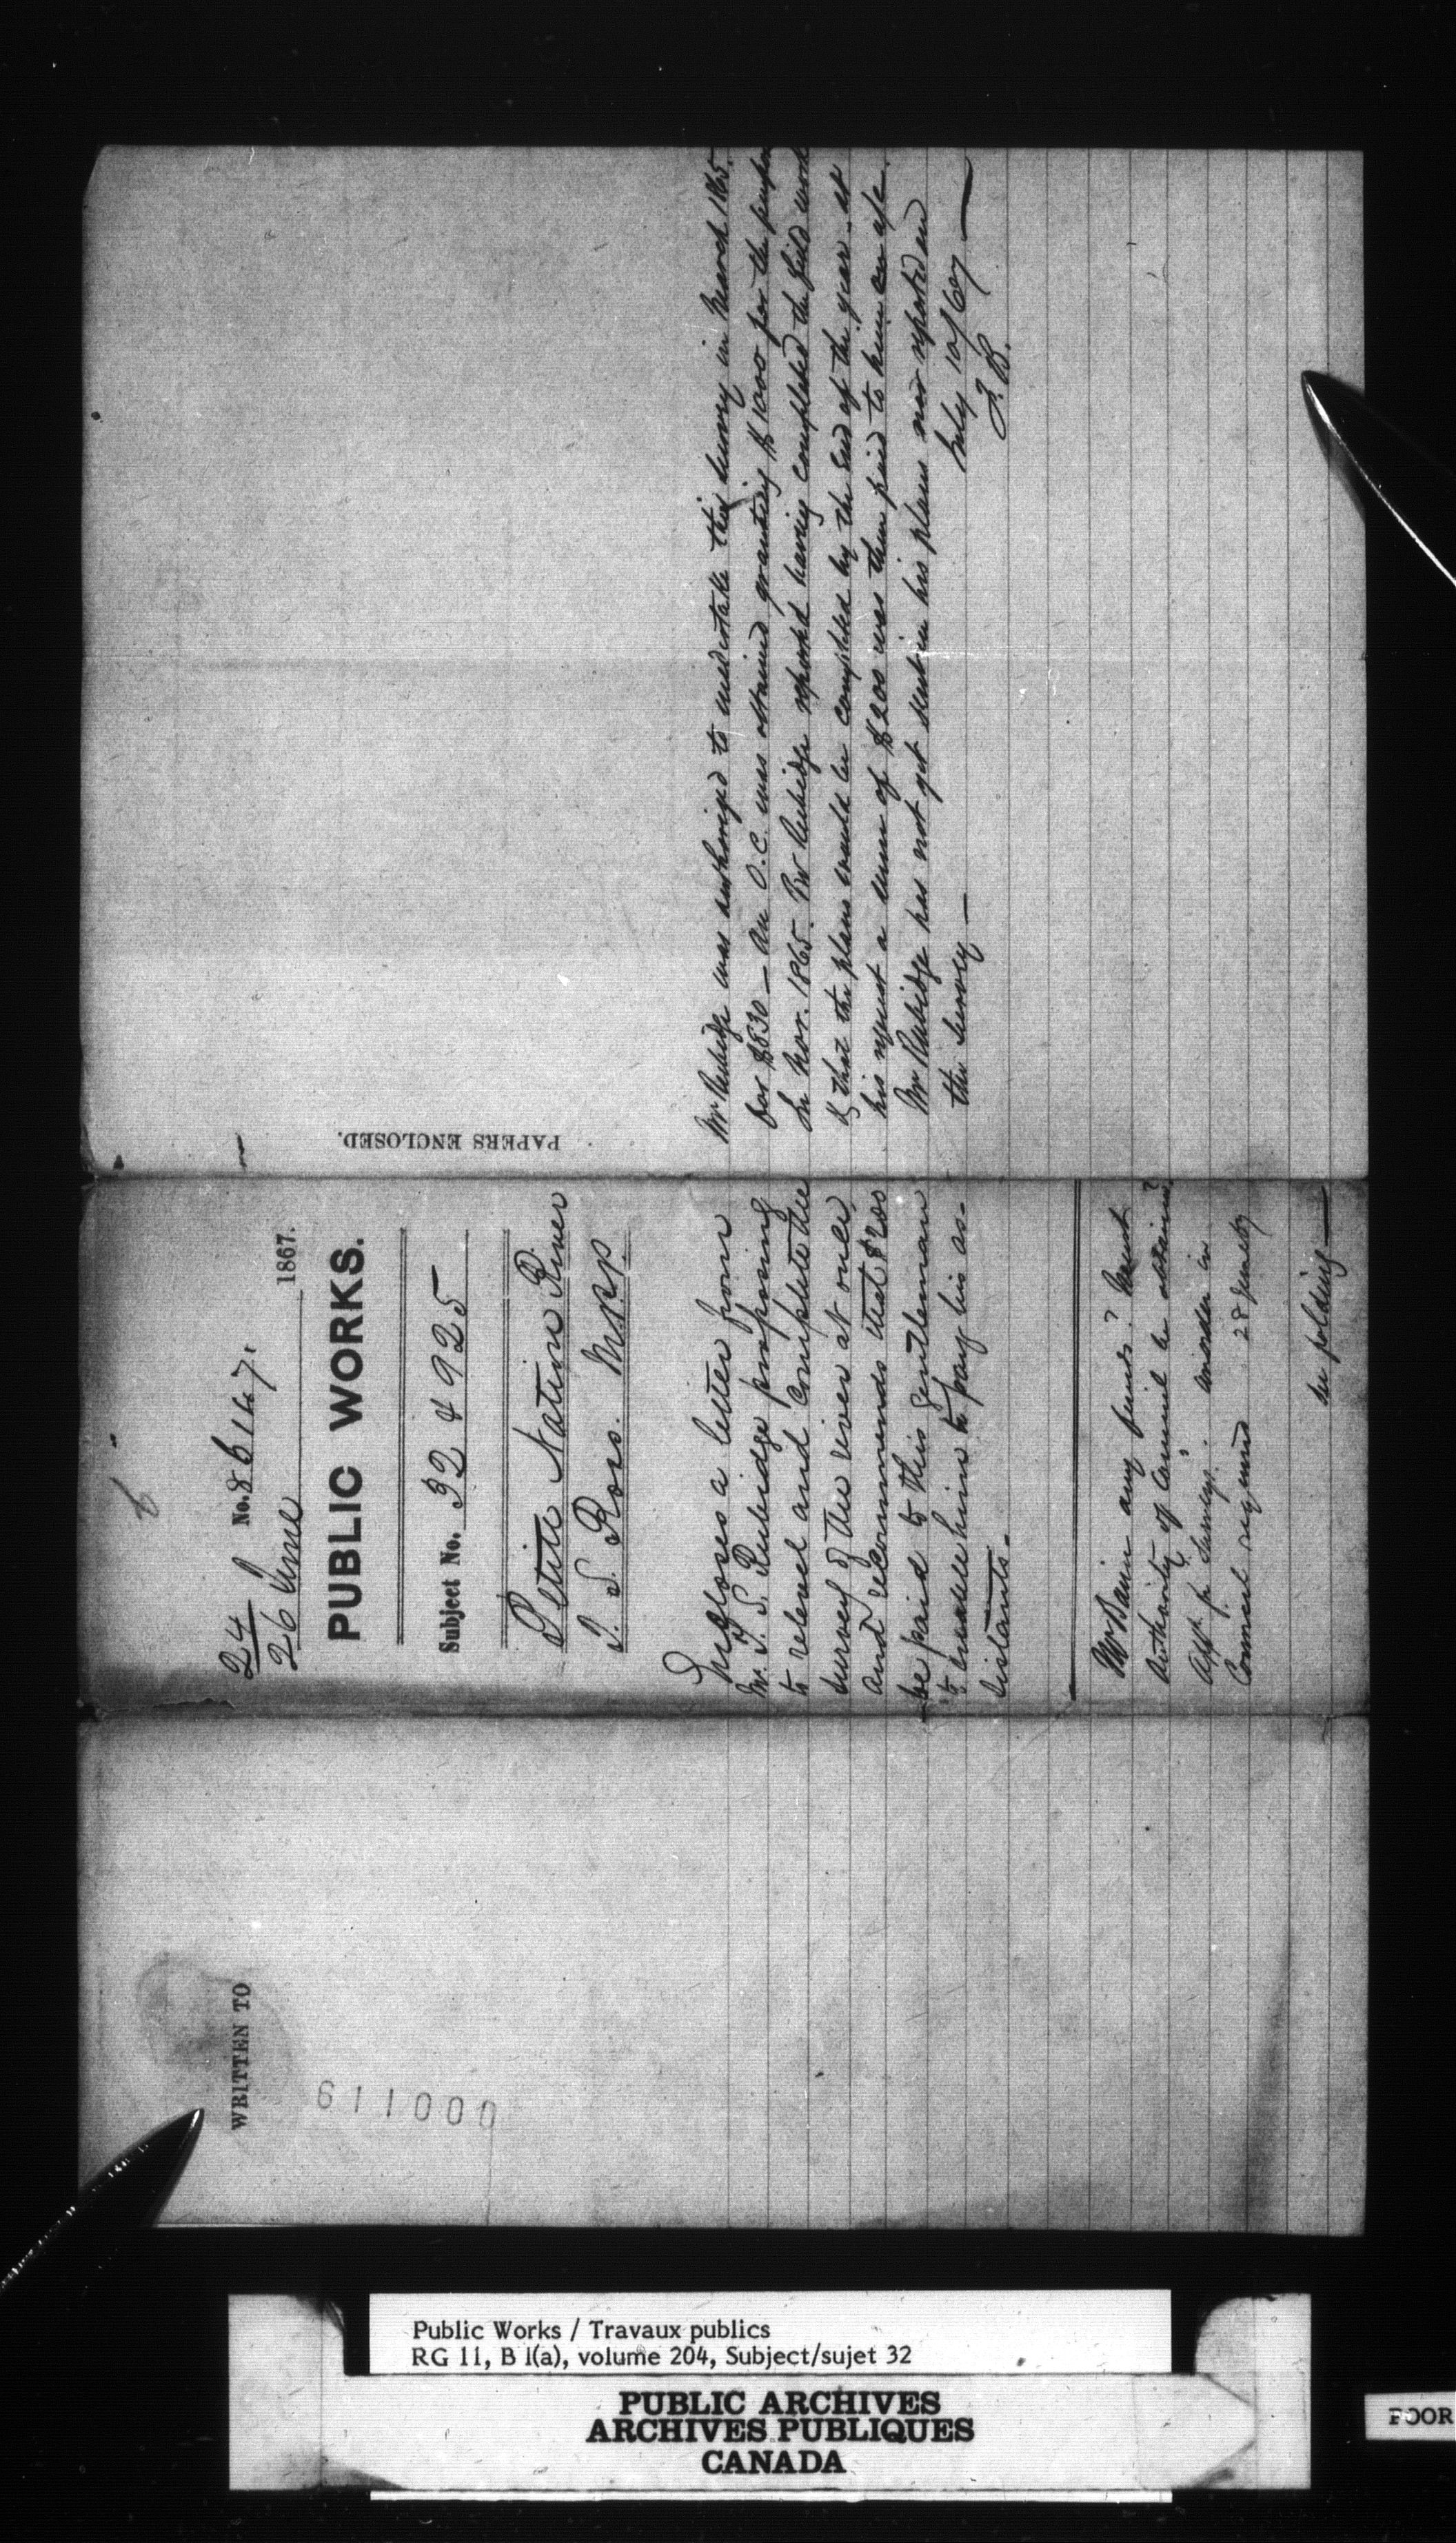 6
24
26 June No. 86147.
1867.
PUBLIC WORKS.
Subject No. 32 & 925
Petite Nation River
T. S. Ross. M.P.P.
Incloses a letter from
Mr. T. S. Rubidge proposing
to relevel and complete the
survey of the river at once,
and recommends that $200
be paid to this gentleman
to enable him to pay his as-
sistants.
Mr Baine any funds? Must
Authority of Council be obtained?
Appn. for Surveys. order in
Council required 28 June 67
see folding
PAPERS ENCLOSED.
Mr Rubidge was authorized to undertake this survey in March 1865.
for $830 — An O.C. was obtained granting $1000 for the purpose
In Nov. 1865. Mr Rubidge reported having completed the field work
& that the plans would be completed by the end of the year. at
his request a sum of $200 was then paid to him on a/c.
Mr Rubidge has not yet sent in his plans nor reported on
the survey —
July 10/67 —
F. B.
WRITTEN TO
000119
Public Works / Travaux publics
RG 11, B 1(a), volume 204, Subject/sujet 32
PUBLIC ARCHIVES
ARCHIVES PUBLIQUES
CANADA
POOR